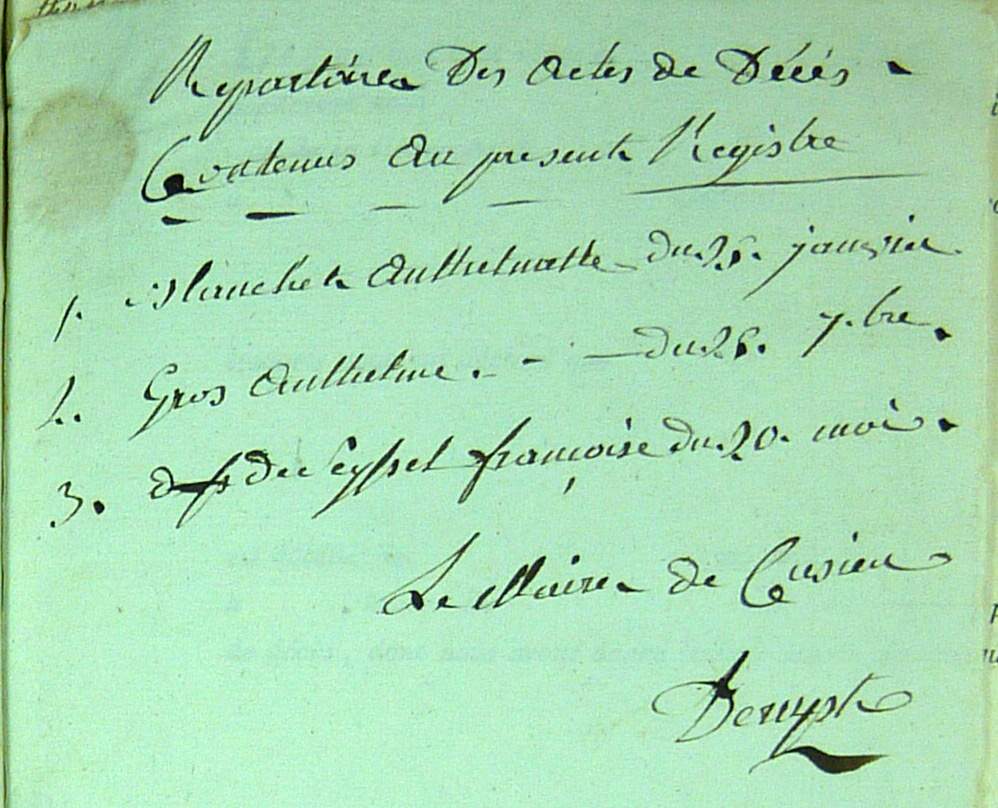 Repertoire Des Actes de Décés
Contenus Au present Registre
1. Blanchet Anthelmette du 25. janvier
2. Gros Anthelme. - — du 26. 7.bre.
3. deceysset françoise du 20. mai.
Le Maire de Cusieu